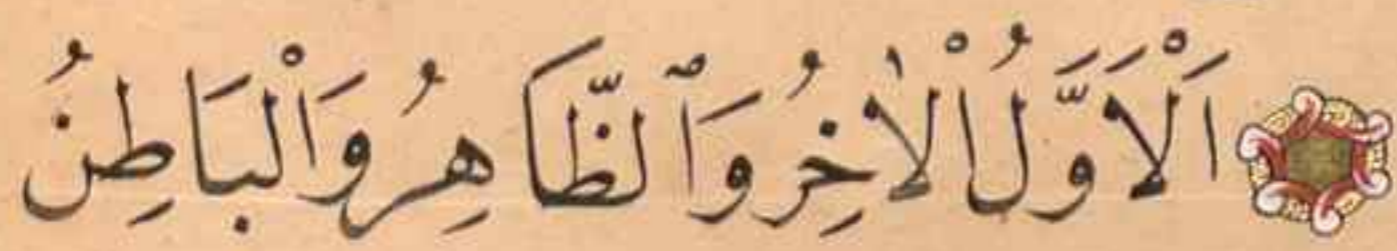 اَلْاَوَّلُ الْاٰخِرُ وَٱلظَّاهِرُ وَالْبَاطِنُ